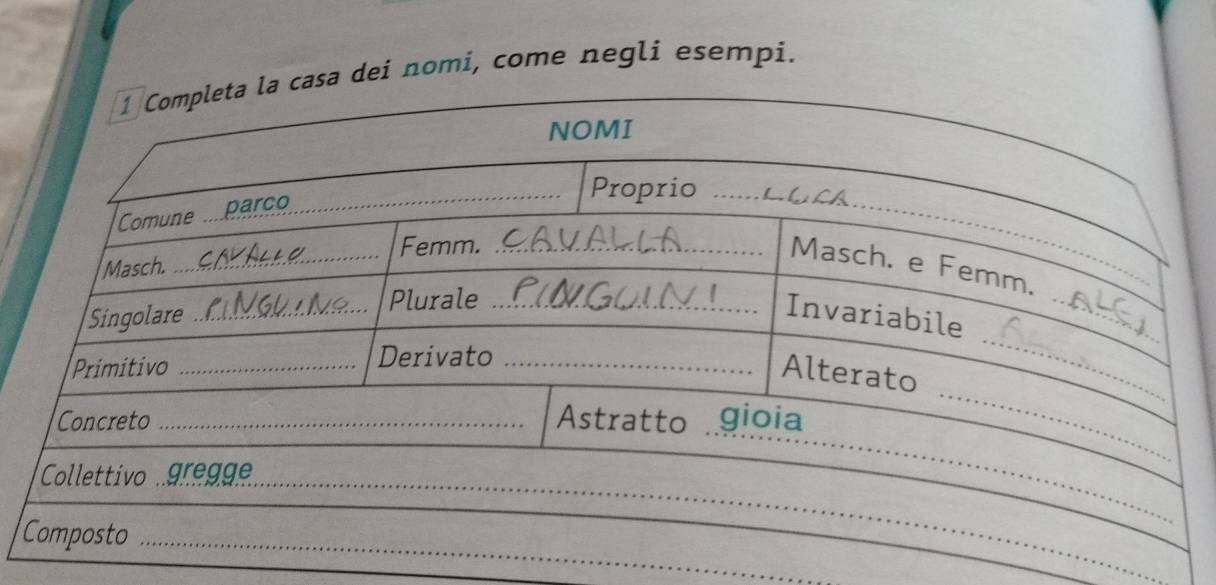 1 Completa la casa dei nomi, come negli esempi.
NOMI
Comune parco Proprio LUCA
Masch. CAVALLO Femm. CAVALLA Masch. e Femm.
Singolare PINGUINO Plurale PINGUINI Invariabile
Primitivo Derivato Alterato
Concreto Astratto gioia
Collettivo gregge
Composto